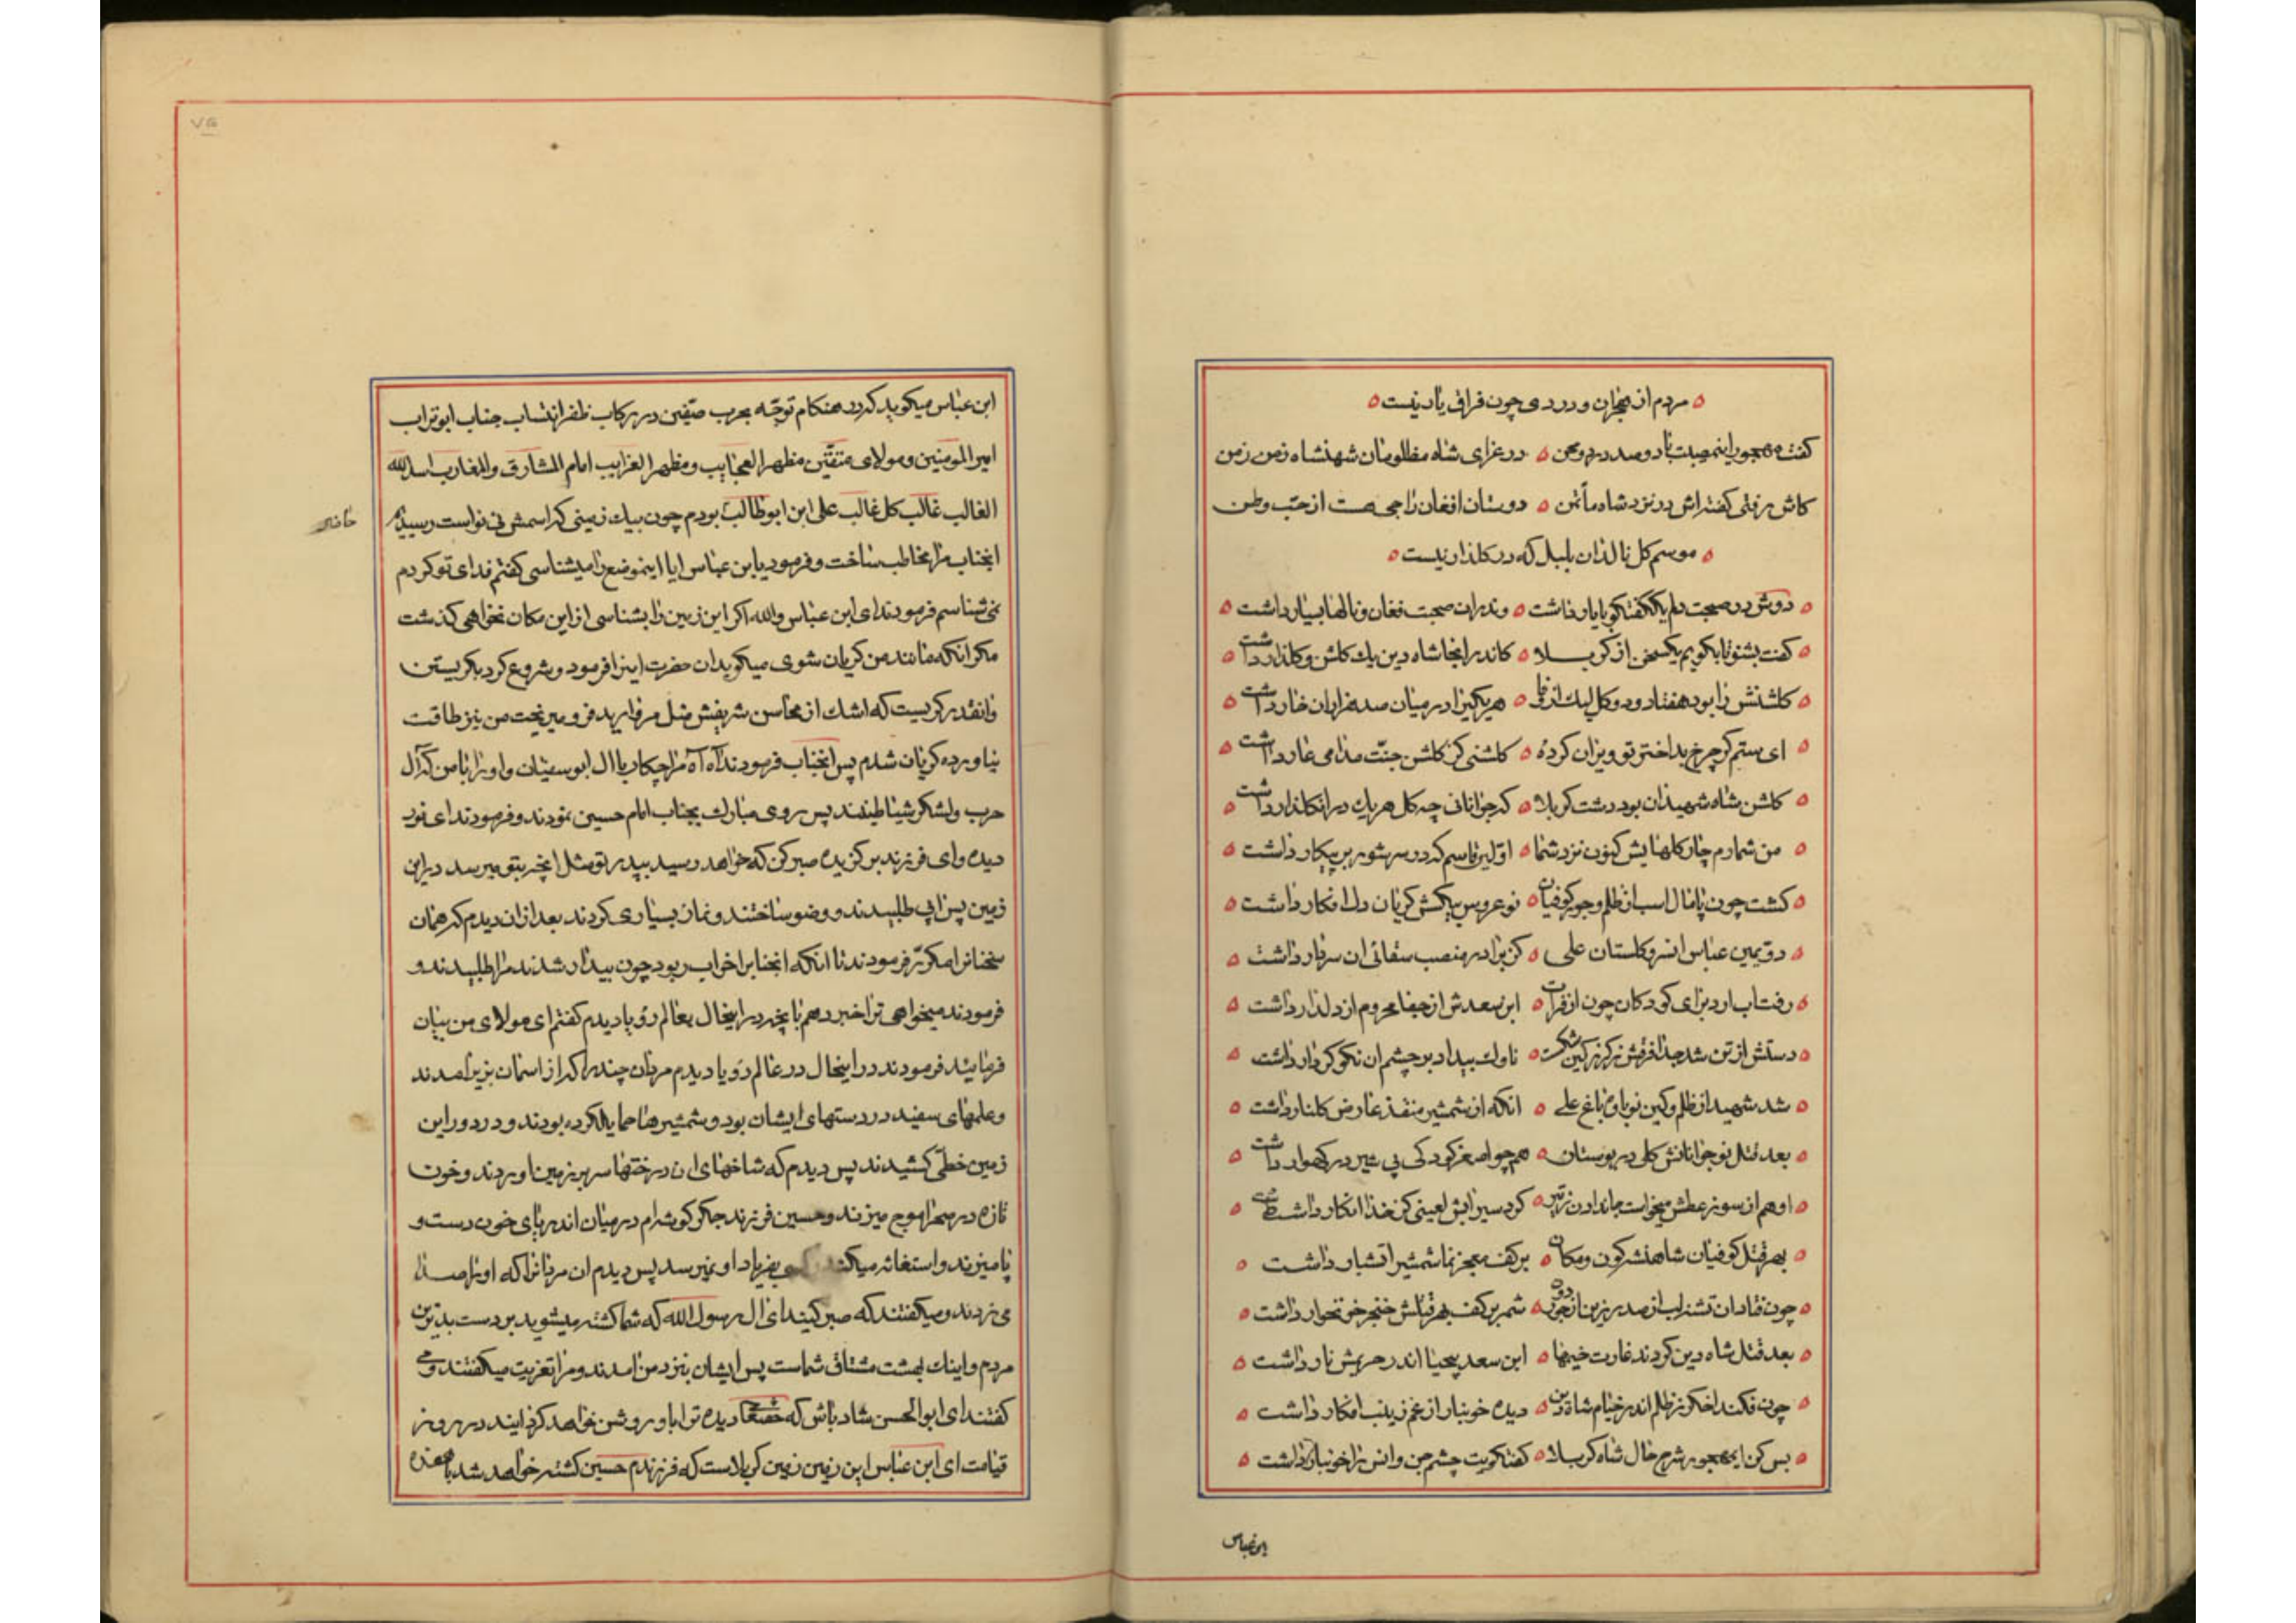 مردم از هجران و دردی چون فراق یار نیست
گفت مهجور این مصیبت با دو صد درد و محن در عزای شاه مظلومان شهنشاه زمن
کاش میرفتی گفته‌اش در نزد شاه مأتمن دوستان افغان راجی هست از حب وطن
موسم کل نالد آن بلبل که در کلذار نیست
دوش در صحبت دلم یک کفتکو با یار داشت وندران صحبت فغان و نالها بسیار داشت
کفت بشنو تا بکویم یکسخن از کربلا کاندر انجا شاه دین یک کلشن و کلذار داشت
کلشنش را بود هفتاد و دو کل لیک از قفا هر یکیرا در میان صد هزاران خار داشت
ای ستم کر چرخ بد اختر تو ویران کردهٔ کلشنی کز کلشن جنت مدامی عار داشت
کلشن شاه شهیدان بود دشت کربلا که جوانانی چه کل هر یک در ان کلذار داشت
من شمارم چار کلهایش کنون نزد شما اولین قاسم که در سر شور بر پیکار داشت
کشت چون پامال اسب از ظلم و جور کوفیان نو عروس بیکسش کریان دل افکار داشت
دویمین عباس ان سرو کلستان علی کز برادر منصب سقائی ان سردار داشت
رفت اب ارد برای کودکان چون از فرات ابن سعدش از جفا محروم از دلدار داشت
دستش از تن شد جدا فرقش ز کرز کین شکست ناوک بیداد بر چشم ان نکو کردار داشت
شد شهید از ظلم و کین نوباوهٔ باغ علی انکه از شمشیر منقذ عارض کلنار داشت
بعد قتل نوجوانانش کلی در بوستان همچو اصغر کودکی بی شیر در کهوار داشت
او هم از سوز عطش میخواست جان دادن ز تیر کرد سیرابش لعینی کز خدا انکار داشت
بهر قتل کوفیان شاهنشه کون و مکان بر کف معجز نما شمشیر اتشبار داشت
چون فتاد ان تشنه لب از صدر زین از جور شمر بر کف بهر قتلش خنجر خونخوار داشت
بعد قتل شاه دین کردند غارت خیمها ابن سعد بیحیا اندر حریمش نار داشت
چون فکند اخکر ز ظلم اندر خیام شاه دین دیده خونبار از غم زینب افکار داشت
بس کن ای مهجور شرح حال شاه کربلا کفتکویت چشم جن و انس را خونبار داشت
ابن عباس
ابن عباس میکوید که در هنکام توجه بحرب صفین در رکاب ظفر انتساب جناب ابوتراب
امیر المومنین و مولای متقین مظهر العجایب و مظهر الغرایب امام المشارق والمغارب اسد الله
الغالب غالب کل غالب علی ابن ابوطالب بودم چون بیک زمینی که اسمش نی نواست رسیدیم
انجناب مرا مخاطب ساخت و فرمود یا بن عباس ایا اینموضع را میشناسی کفتم فدای تو کردم
نمیشناسم فرمودند ای ابن عباس والله اکر این زمین را بشناسی از این مکان نخواهی کذشت
مکر انکه مانند من کریان شوی میکوید ان حضرت اینرا فرمود و شروع کرد بکریستن
وانقدر کریست که اشک از محاسن شریفش مثل مروارید فرو میریخت من نیز طاقت
نیاورده کریان شدم پس انجناب فرمودند آه آه مرا چکار با ال ابوسفیان و او را با من که ال
حرب و لشکر شیاطینند پس روی مبارک بجناب امام حسین نمودند و فرمودند ای نور
دیده و ای فرزند برکزیده صبر کن که خواهد رسید بپدر تو مثل انچه بتو میرسد در این
زمین پس ابی طلبیدند و وضو ساختند و نماز بسیاری کردند بعد از ان دیدم که همان
سخنانرا مکرر فرمودند تا انکه انجنابرا خواب ربود چون بیدار شدند مرا طلبیدند و
فرمودند میخواهی ترا خبر دهم بانچه در اینحال بعالم رؤیا دیدم کفتم ای مولای من بیان
فرمایید فرمودند در اینحال در عالم رؤیا دیدم مردان چند را که از اسمان بزیر امدند
و علمهای سفید در دستهای ایشان بود و شمشیرها حمایل کرده بودند و در دور این
زمین خطی کشیدند پس دیدم که شاخهای ان درختها سر بر زمین اوردند و خون
تازه در صحرا موج میزند و حسین فرزند جکر کوشه‌ام در میان ان دریای خون دست و
پا میزند و استغاثه میکند کسی بفریاد او نمیرسد پس دیدم ان مردانرا که او را صدا
می زدند و میکفتند که صبر کنید ای ال رسول الله که شما کشته میشوید بر دست بدترین
مردم و اینک بهشت مشتاق شماست پس ایشان بنزد من امدند و مرا تعزیت میکفتند و می
کفتند ای ابوالحسن شاد باش که دیده ترا باو روشن خواهد کردانید در روز
قیامت ای ابن عباس این زمین زمین کربلاست که فرزندم حسین کشته خواهد شد با هفده